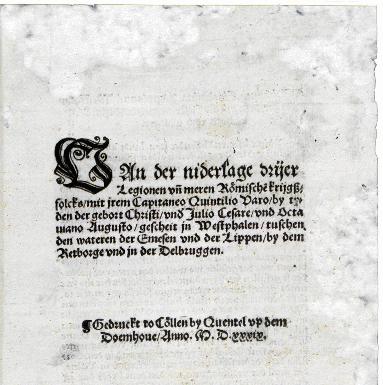 VAn der niderlage drijer
Legionen vñ meren Römische krijgß,
folcks/mit jrem Capitaneo Quintilio Varo/by tÿ,
den der gebort Christi/vnd Julio Cesare/vnd Octa
uiano Augusto/gescheit jn Westphalen/tuschen
den wateren der Emesen vnd der Lippen/by dem
Retborge vnd in der Delbruggen.
¶Gedruckt to Cöllen by Quentel vp dem
Doemhoue/Anno. M. D.xxxix.